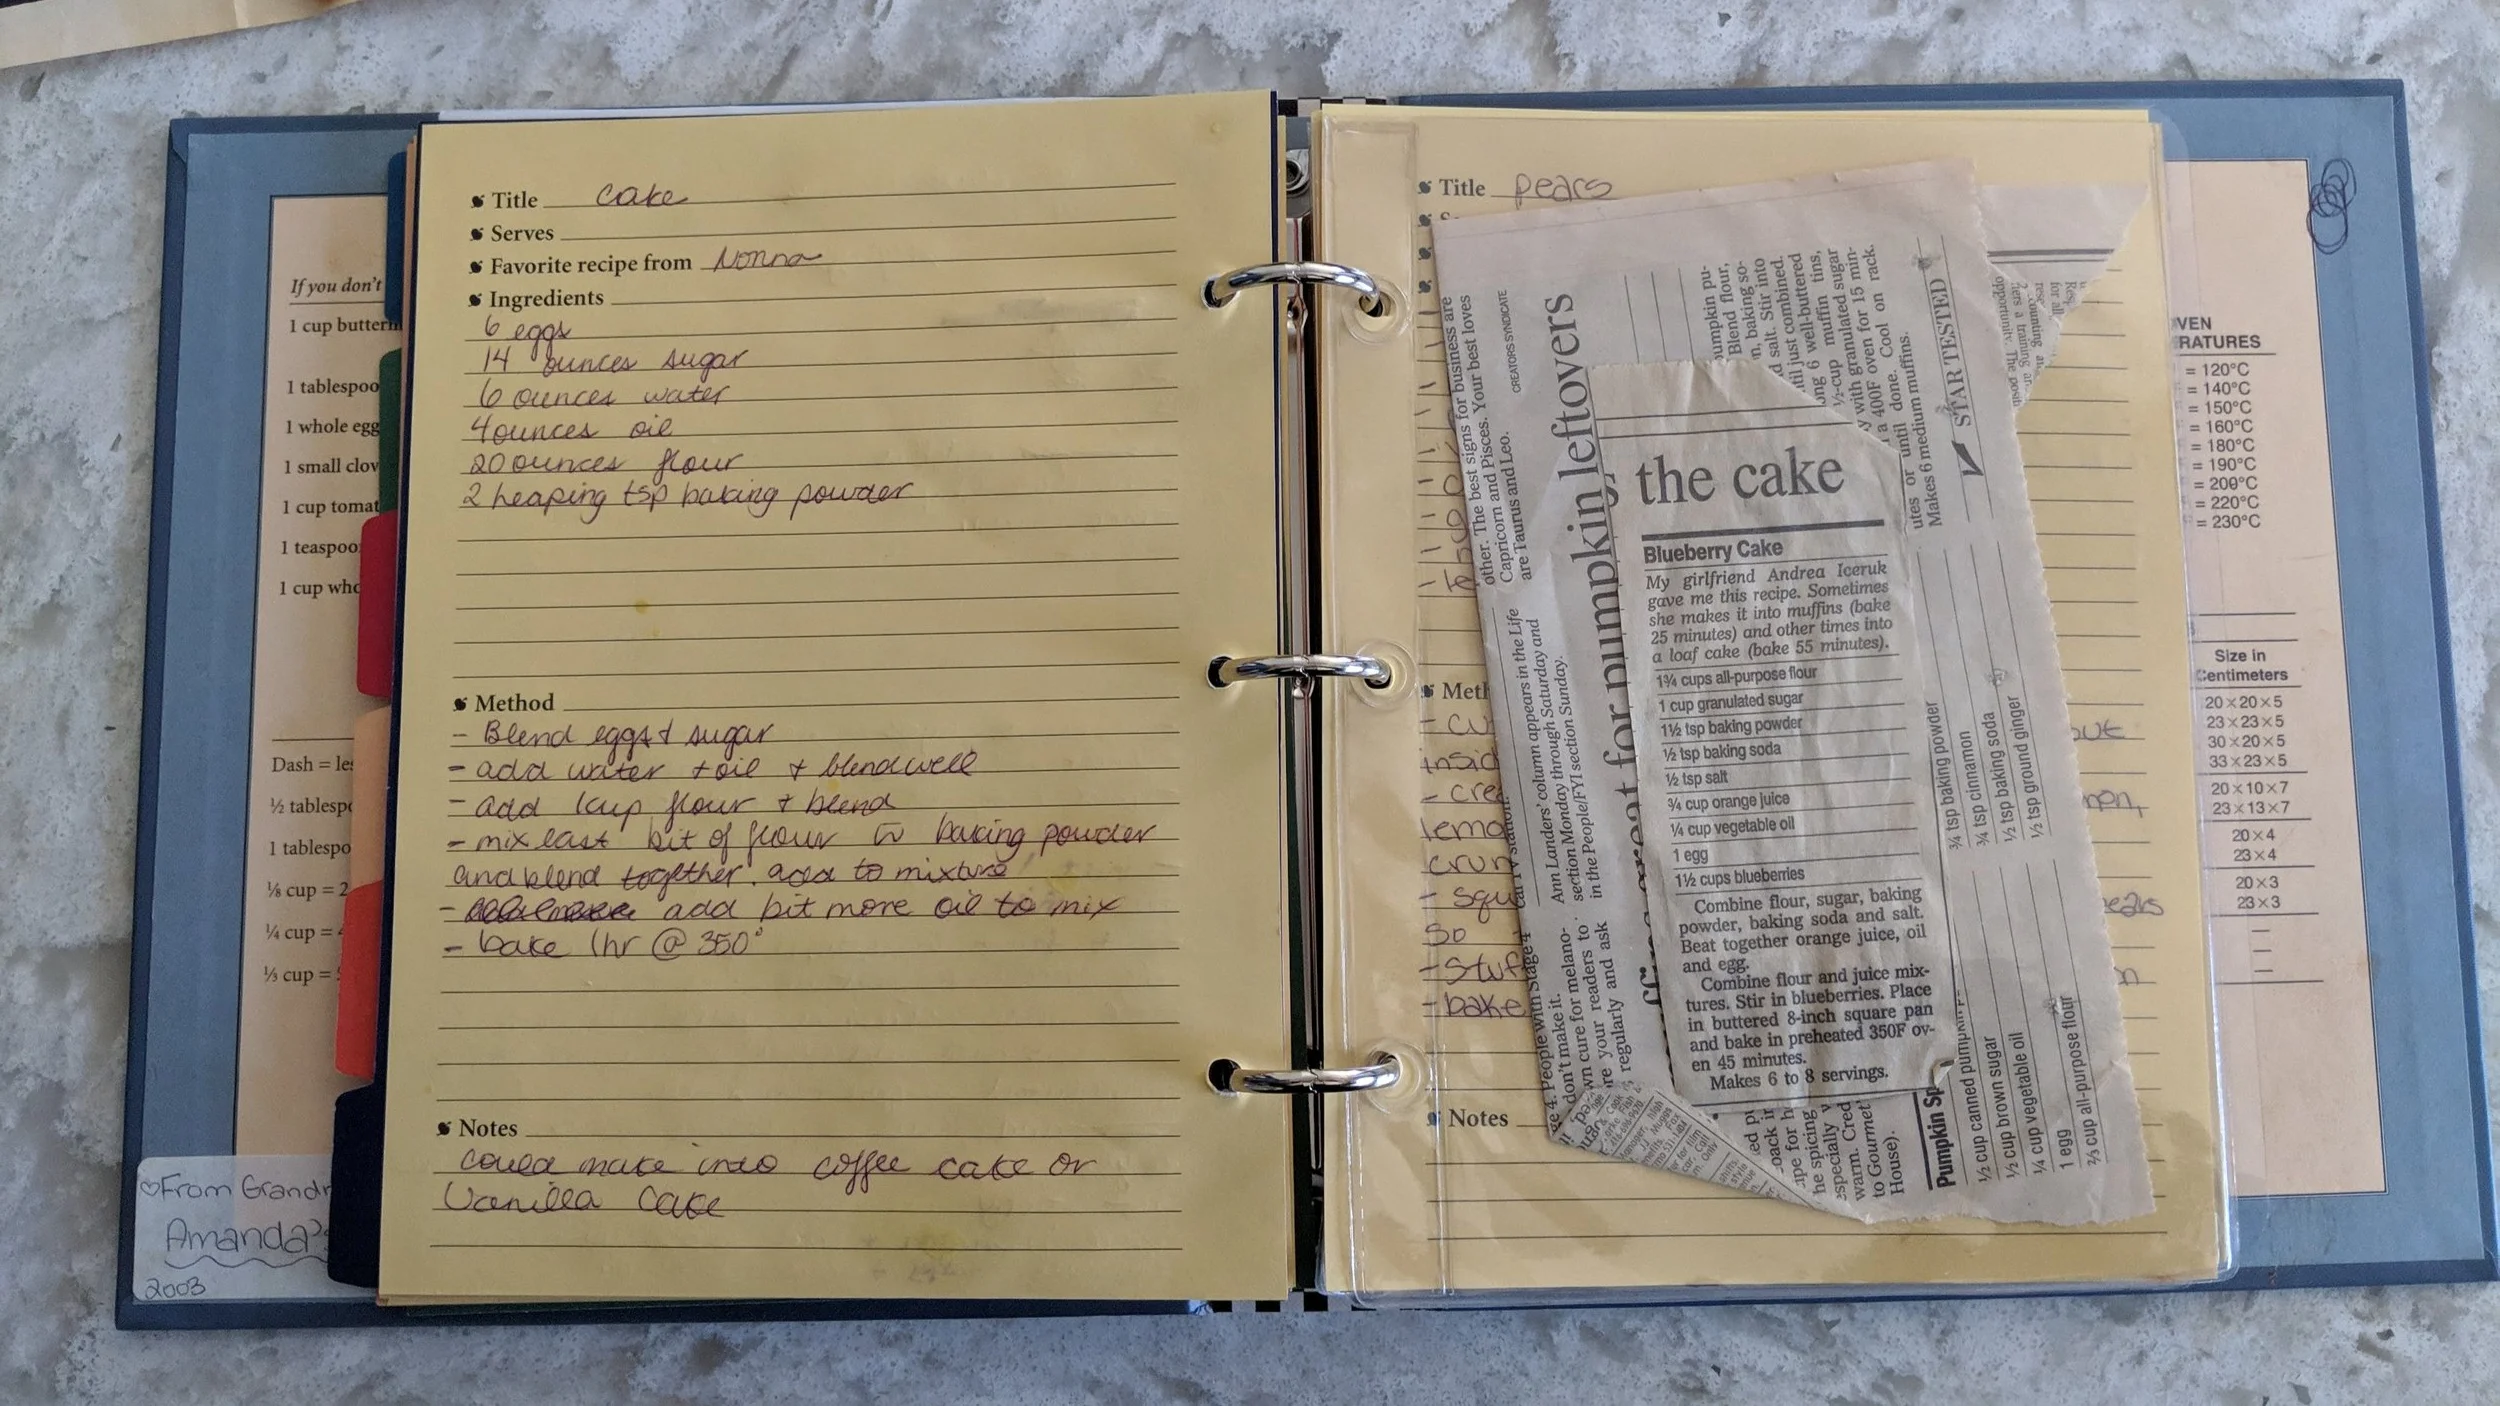 Title cake
Serves
Favorite recipe from Nonna
Ingredients
6 eggs
14 ounces sugar
6 ounces water
4 ounces oil
20 ounces flour
2 heaping tsp baking powder
Method
- Blend eggs + sugar
- add water + oil + blend well
- add 1 cup flour + blend
- mix last bit of flour w baking powder
and blend together. add to mixture
- add bit more oil to mix
- bake 1hr @ 350°
Notes
could make into coffee cake or
Vanilla Cake
If you don't
1 cup butterm
1 tablespoo
1 whole egg
1 small clov
1 cup tomat
1 teaspoo
1 cup who
Dash = les
½ tablesp
1 tablespo
⅛ cup = 2
¼ cup = 4
⅓ cup = 5
♡From Grand
Amanda's
2003
Title pears
Meth
- cu
insid
- cre
lemo
crun
- squ
so
- stuf
- bake
Notes
the cake
Blueberry Cake
My girlfriend Andrea Iceruk
gave me this recipe. Sometimes
she makes it into muffins (bake
25 minutes) and other times into
a loaf cake (bake 55 minutes).
1¾ cups all-purpose flour
1 cup granulated sugar
1½ tsp baking powder
½ tsp baking soda
½ tsp salt
¾ cup orange juice
¼ cup vegetable oil
1 egg
1½ cups blueberries
Combine flour, sugar, baking
powder, baking soda and salt.
Beat together orange juice, oil
and egg.
Combine flour and juice mix-
tures. Stir in blueberries. Place
in buttered 8-inch square pan
and bake in preheated 350F ov-
en 45 minutes.
Makes 6 to 8 servings.
other. The best signs for business are
Capricorn and Pisces. Your best loves
are Taurus and Leo.
CREATORS SYNDICATE
Ann Landers' column appears in the Life
section Monday through Saturday and
in the People/FYI section Sunday.
e 4. People with Stage 4
don't make it.
wn cure for melano-
re your readers to
regularly and ask
great for pumpkin leftovers
pumpkin pu-
Blend flour,
n, baking so-
d salt. Stir into
til just combined.
ong 6 well-buttered
½-cup muffin tins,
y with granulated sugar
a 400F oven for 15 min-
utes or until done. Cool on rack.
Makes 6 medium muffins.
✓ STAR TESTED
ipe for h
he spicing
especially
warm. Cred
to Gourmet
House).
Pumpkin Sp
½ cup canned pumpkin
½ cup brown sugar
¼ cup vegetable oil
1 egg
⅔ cup all-purpose flour
¾ tsp baking powder
¾ tsp cinnamon
½ tsp baking soda
½ tsp ground ginger
VEN
RATURES
= 120°C
= 140°C
= 150°C
= 160°C
= 180°C
= 190°C
= 200°C
= 220°C
= 230°C
Size in
Centimeters
20×20×5
23×23×5
30×20×5
33×23×5
20×10×7
23×13×7
20×4
23×4
20×3
23×3